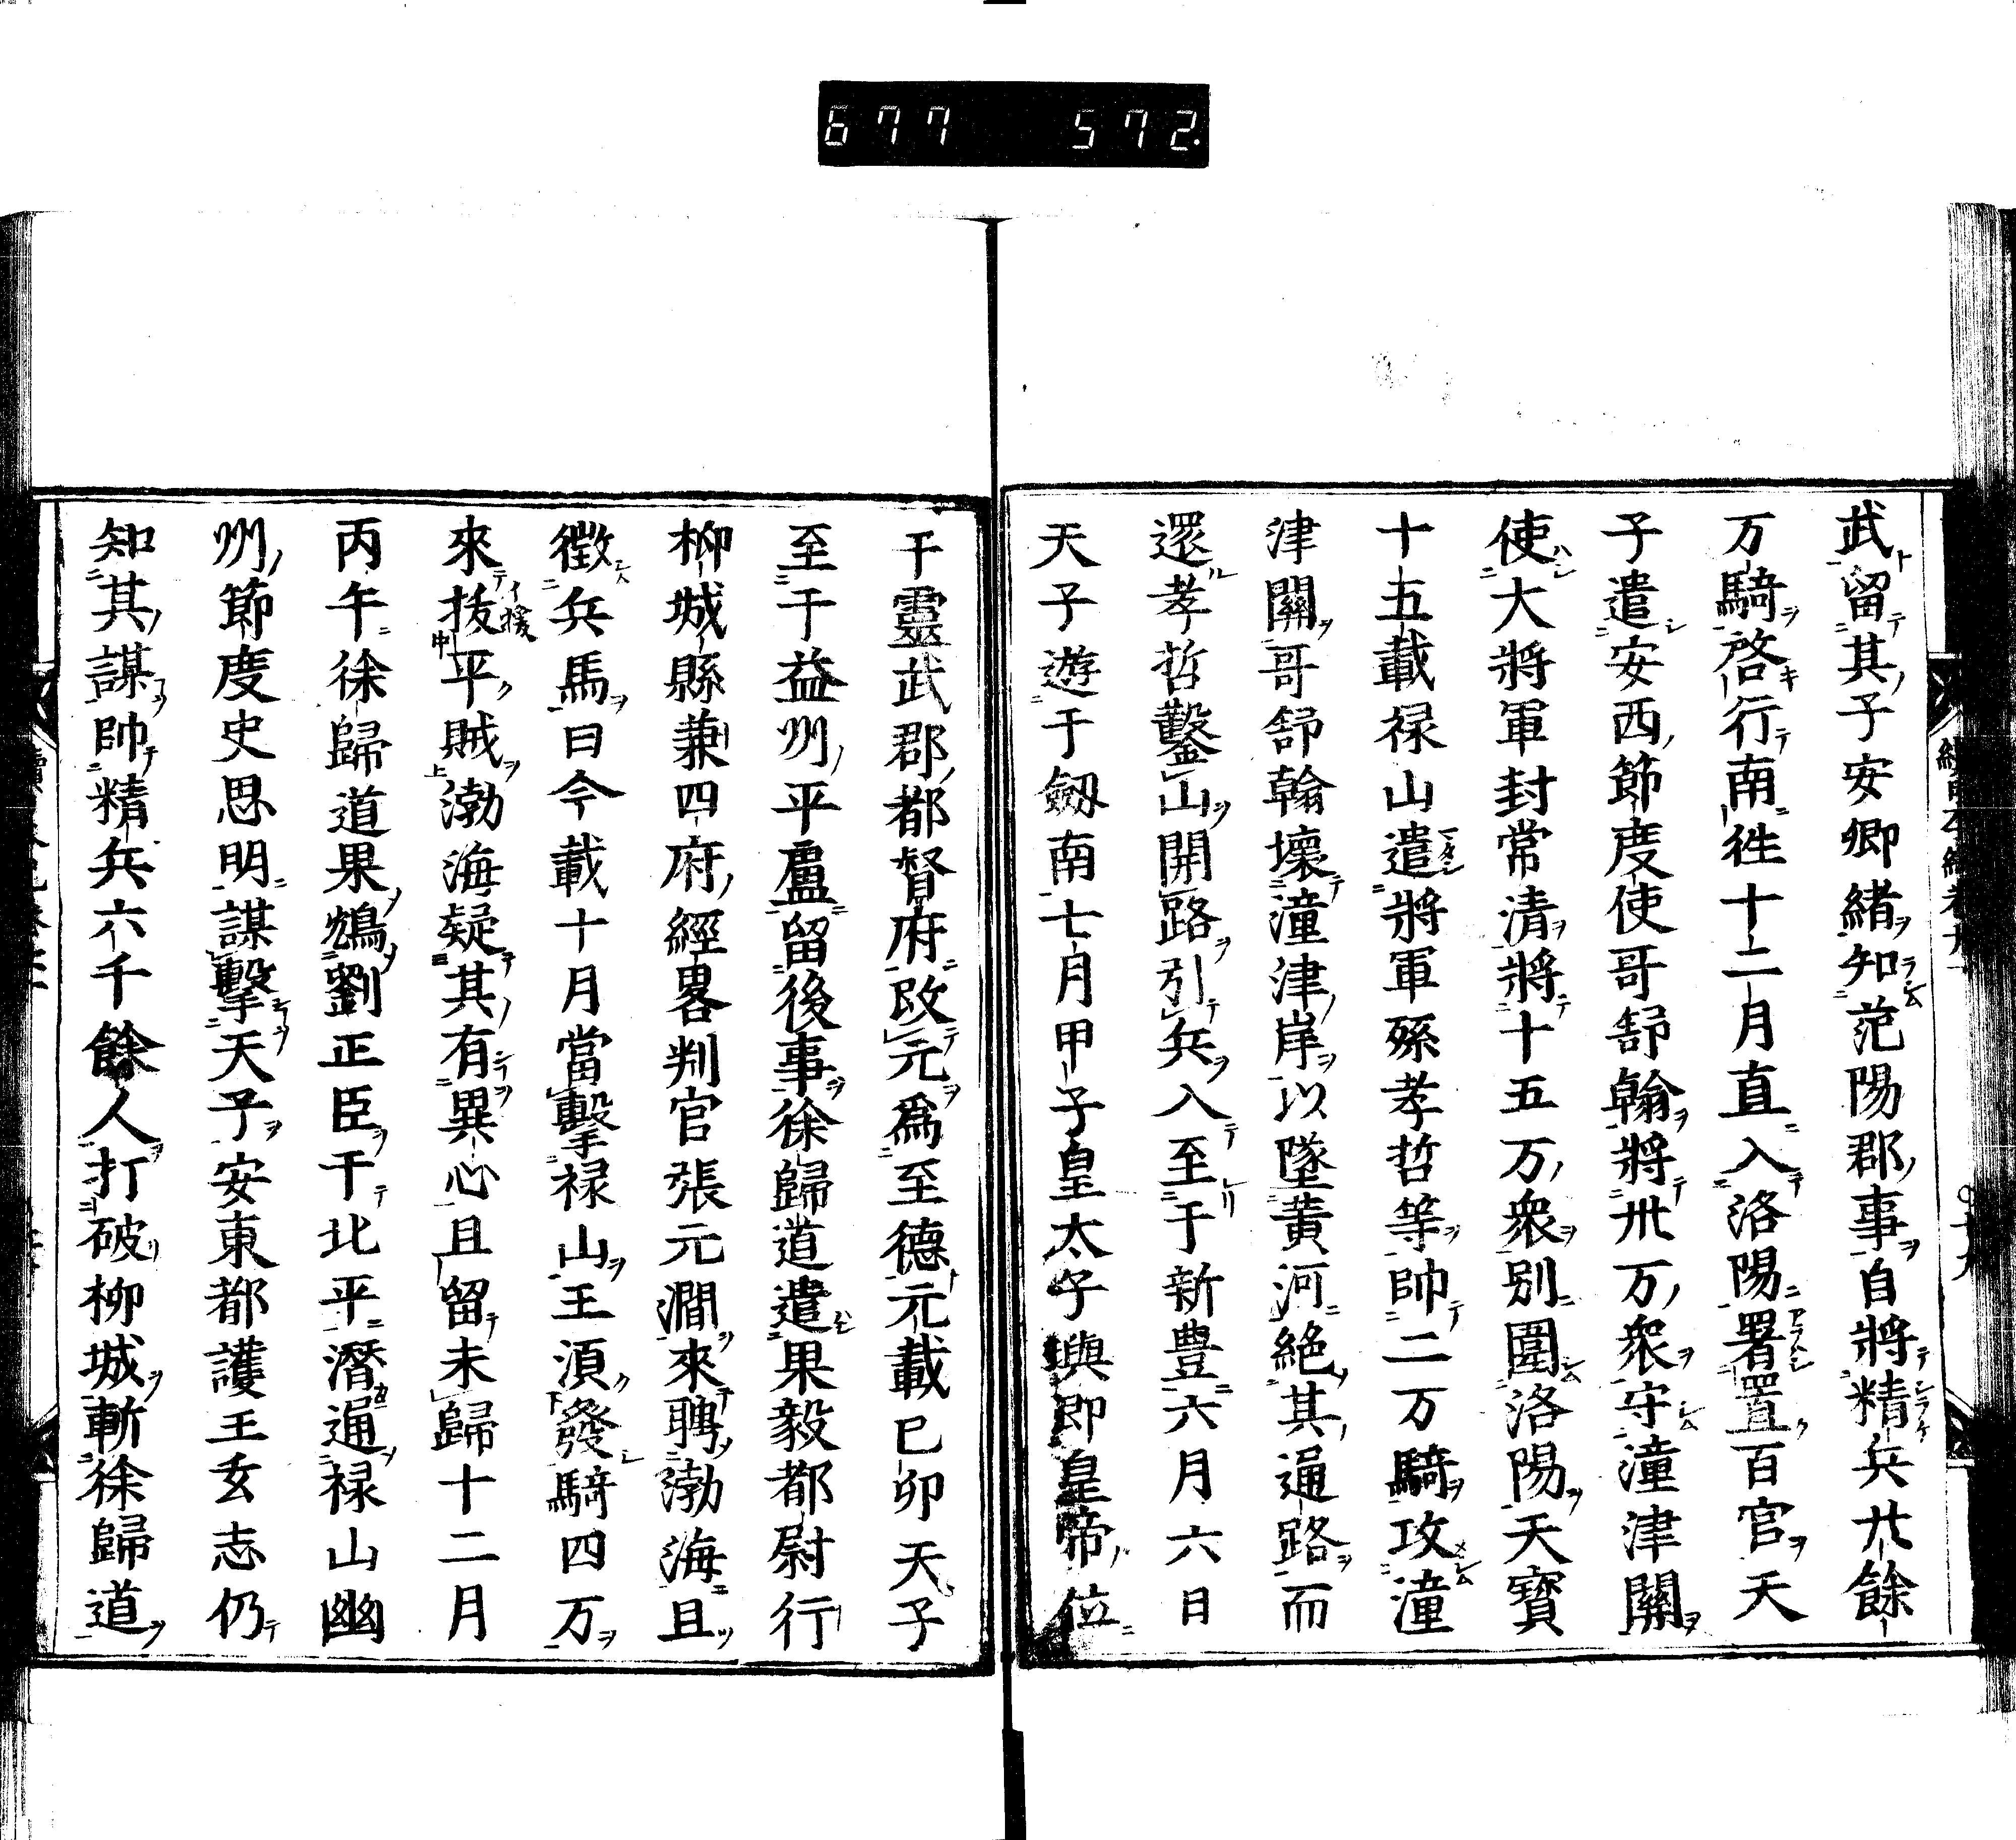 677 572.
武留其子安卿緒知范陽郡事自將精兵廿餘
万騎啓行南往十二月直入洛陽署置百官天
子遣安西節度使哥舒翰將卅万衆守潼津關
使大將軍封常清將十五万衆別圍洛陽天寳
十五載禄山遣將軍孫孝哲等帥二万騎攻潼
津關哥舒翰壞潼津岸以墜黄河絶其通路而
還孝哲鑿山開路引兵入至于新豊六月六日
天子遊于劔南七月甲子皇太子璵即皇帝位
于靈武郡都督府改元爲至德元載己卯天子
至于益州平盧留後事徐歸道遣果毅都尉行
柳城縣兼四府經畧判官張元澗來聘渤海且
徴兵馬曰今載十月當擊禄山王須發騎四万
來拔平賊渤海疑其有異心且留未歸十二月
丙午徐歸道果鴆劉正臣于北平潛通禄山幽
州節度史思明謀擊天子安東都護王玄志仍
知其謀帥精兵六千餘人打破柳城斬徐歸道